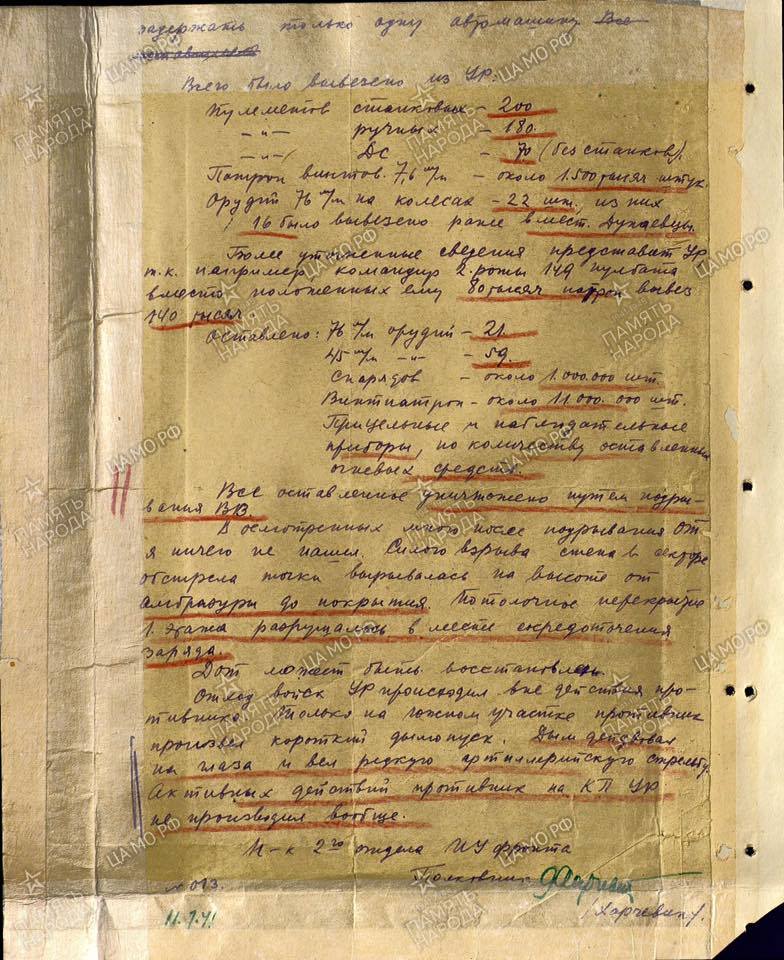 задержать только одну автомашину Все
Всего было вывезено из УР:
Пулеметов станковых – 200
–"– ручных – 180.
–"– ДС – 70 (без станков).
Патрон винтов. 7,6 м/м – около 1.500 тысяч штук.
Орудий 76 м/м на колесах – 22 шт. из них
16 было вывезено ранее в мест. Дунаевцы.
Более уточненные сведения представит УР
т.к. например, командир 2 роты 149 пульбата
вместо положенных ему 80 тысяч патрон вывез
140 тысяч
Оставлено: 76 м/м орудий – 21.
45 м/м –"– – 59.
Снарядов – около 1.000.000 шт.
Винтпатрон – около 11.000.000 шт.
Прицельные и наблюдательные
приборы, по количеству оставленных
огневых средств.
Все оставленное уничтожено путем подры-
вания ВВ.
В осмотренных мною после подрывания ОТ
я ничего не нашел. Силою взрыва стена в секторе
обстрела точки вырывалась на высоте от
амбразуры до покрытия. Потолочное перекрытие
1. этажа разрушалось в месте сосредоточения
заряда.
Дот может быть восстановлен.
Отход войск УР происходил вне действия про-
тивника. Только на южном участке противник
произвел короткий дымопуск. Дым действовал
на глаза и вел редкую артиллерийскую стрельбу.
Активных действий противник на КП УР
не производил вообще.
Н-к 2го отдела ИУ фронта
Полковник
№ 013.
11.7.41
/Харчевин/.
ПАМЯТЬ НАРОДА
ЦА МО РФ